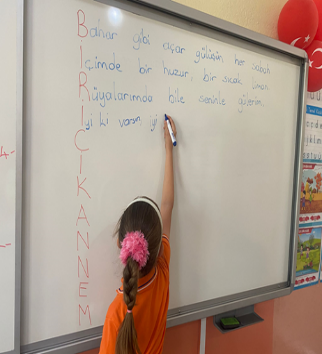 Bahar gibi açar gülüşün, her sabah
İçimde bir huzur, bir sıcak liman.
Rüyalarımda bile seninle gülerim.
İyi ki varsın, iyi
C
İ
K
A
N
N
E
M